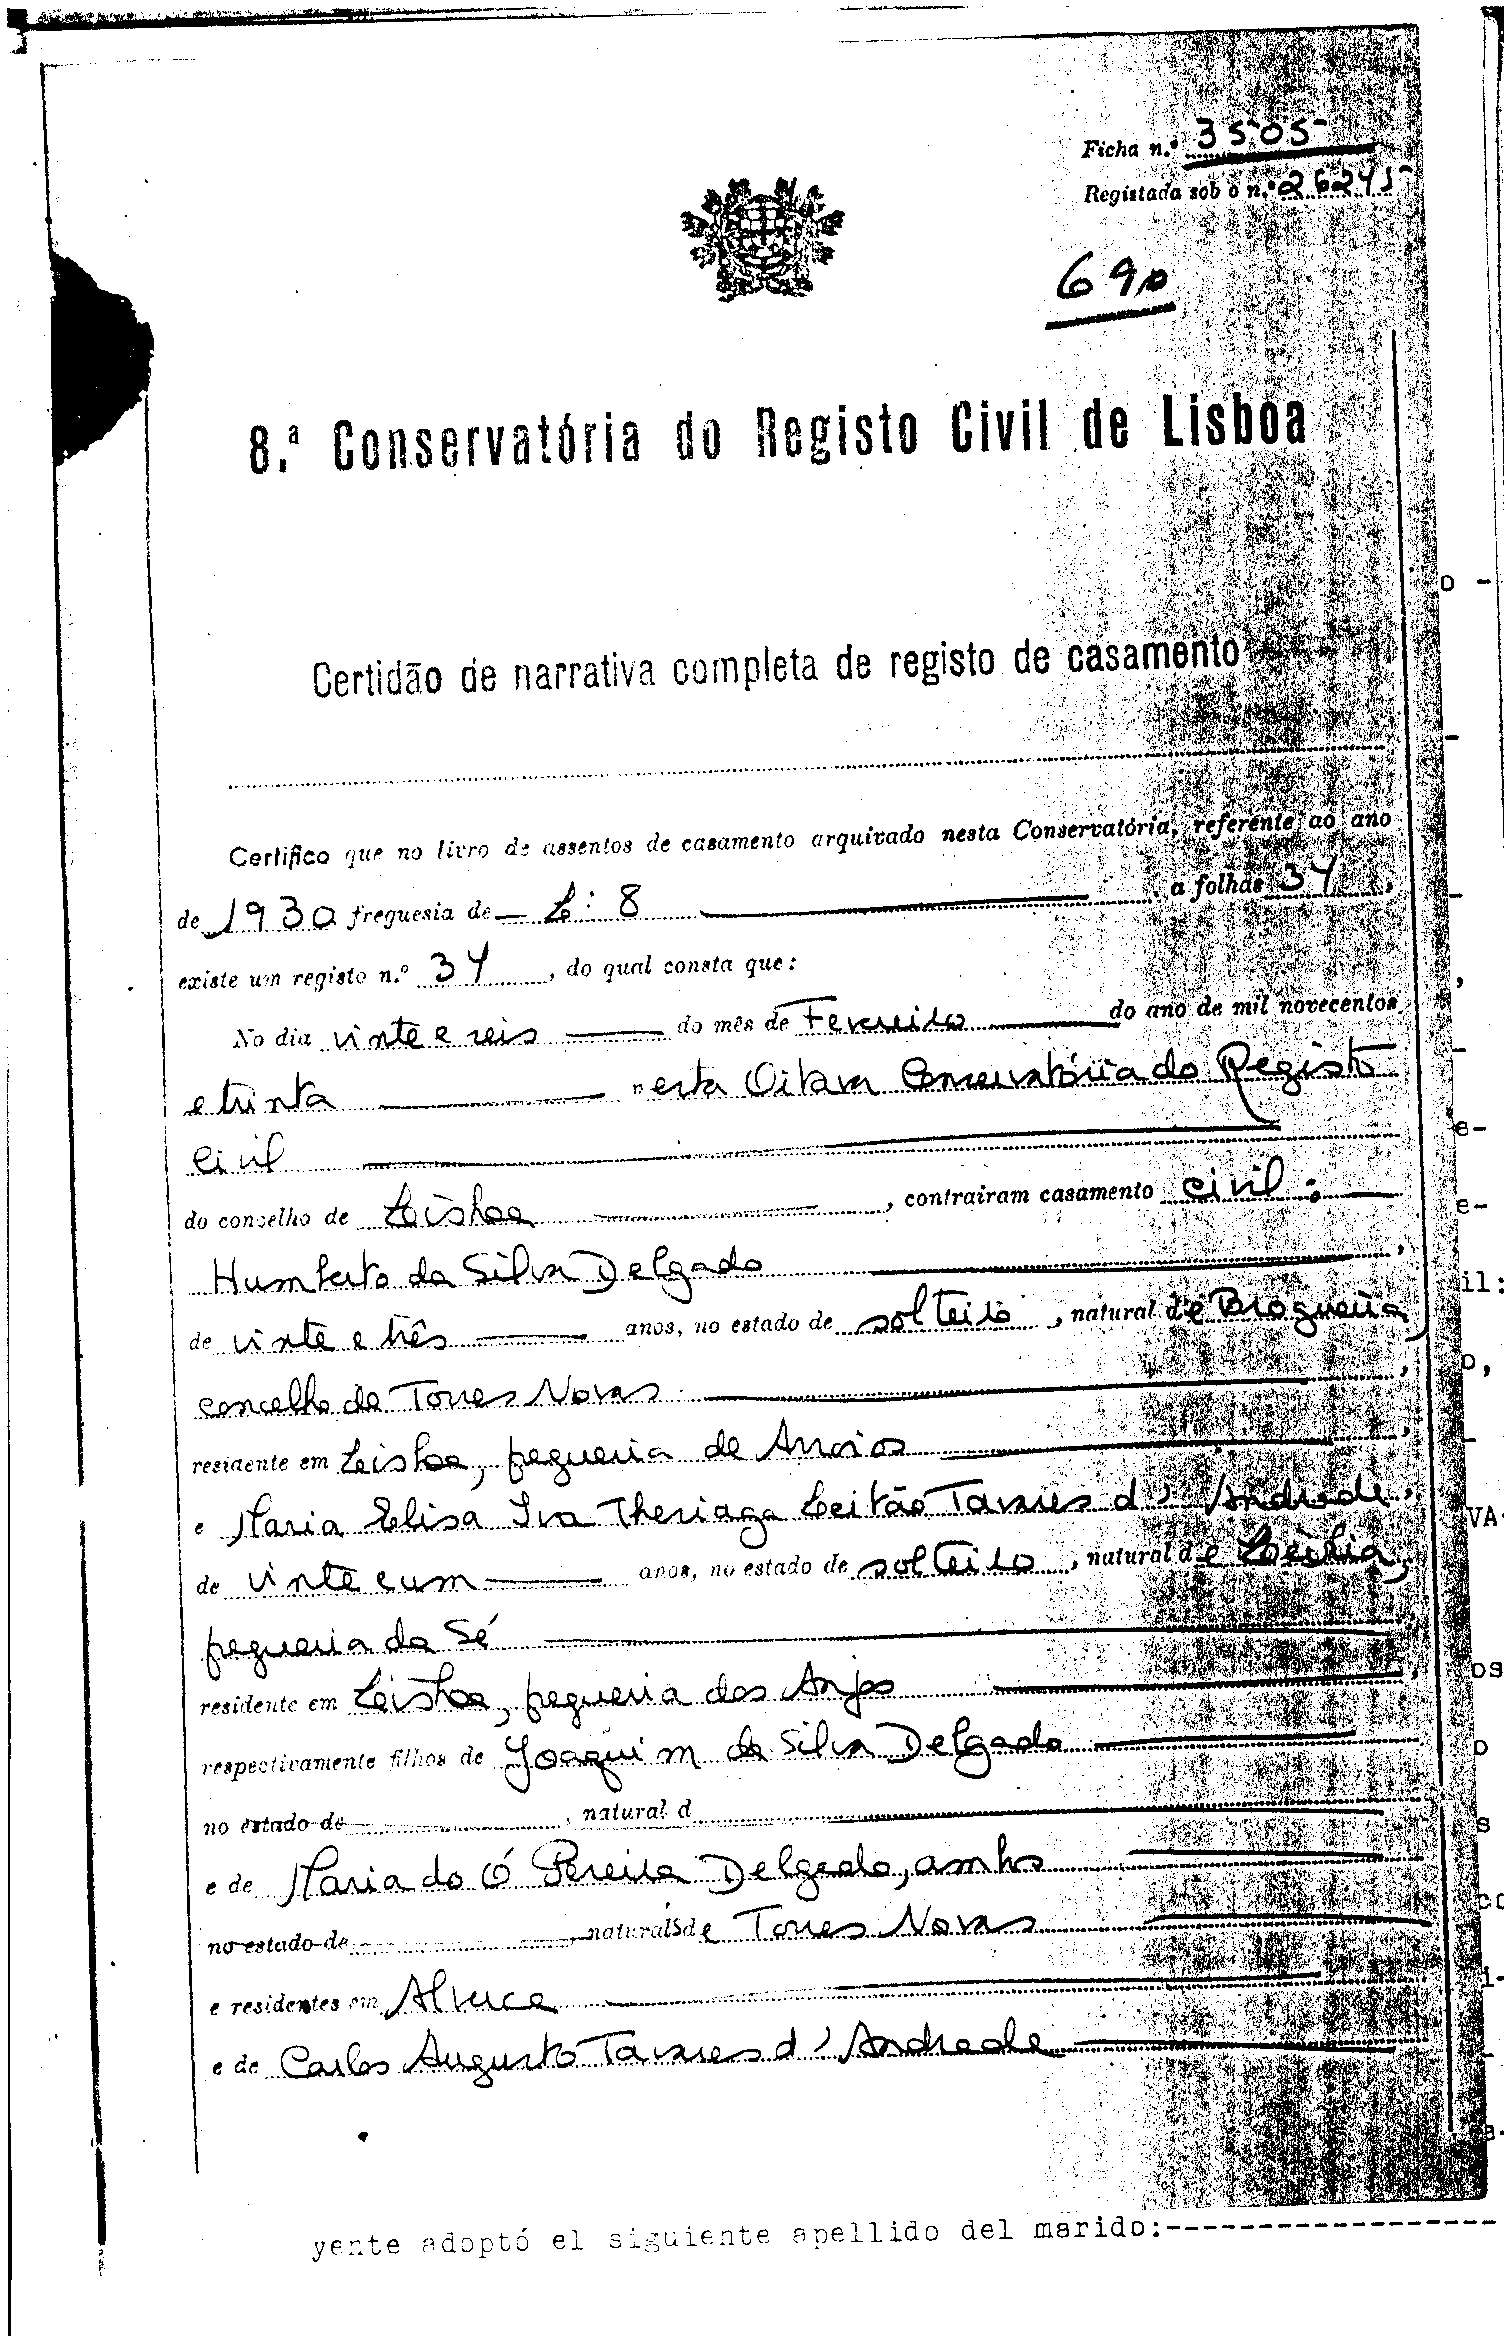 Ficha n.º 3505
Registada sob o n.º 26245
690
8.ª Conservatória do Registo Civil de Lisboa
Certidão de narrativa completa de registo de casamento
Certifico que no livro de assentos de casamento arquivado nesta Conservatória, referente ao ano
de 1930 freguesia de L: 8, a folhas 34,
existe um registo n.º 34, do qual consta que:
No dia vinte e seis do mês de Fevereiro do ano de mil novecentos
e trinta nesta Oitava Conservatória do Registo
Civil
do concelho de Lisboa, contrairam casamento civil:
Humberto da Silva Delgado,
de vinte e três anos, no estado de solteiro, natural de Brogueira,
concelho de Torres Novas,
residente em Lisboa, freguesia de Arroios,
e Maria Elisa Iva Theriaga Leitão Tavares d'Andrade,
de vinte e um anos, no estado de solteiro, natural de
freguesia da Sé
residente em Lisboa, freguesia dos Anjos,
respectivamente filhos de Joaquim da Silva Delgado
no estado de, natural d
e de Maria do Ó Pereira Delgado, ambos
no estado de, naturais de Torres Novas
e residentes em Alverca
e de Carlos Augusto Tavares d'Andrade
yente adoptó el siguiente apellido del marido:------------------
o -
-
-
,
-
e-
e-
il:
o,
-
VA
os
o
s
co
i-
a.